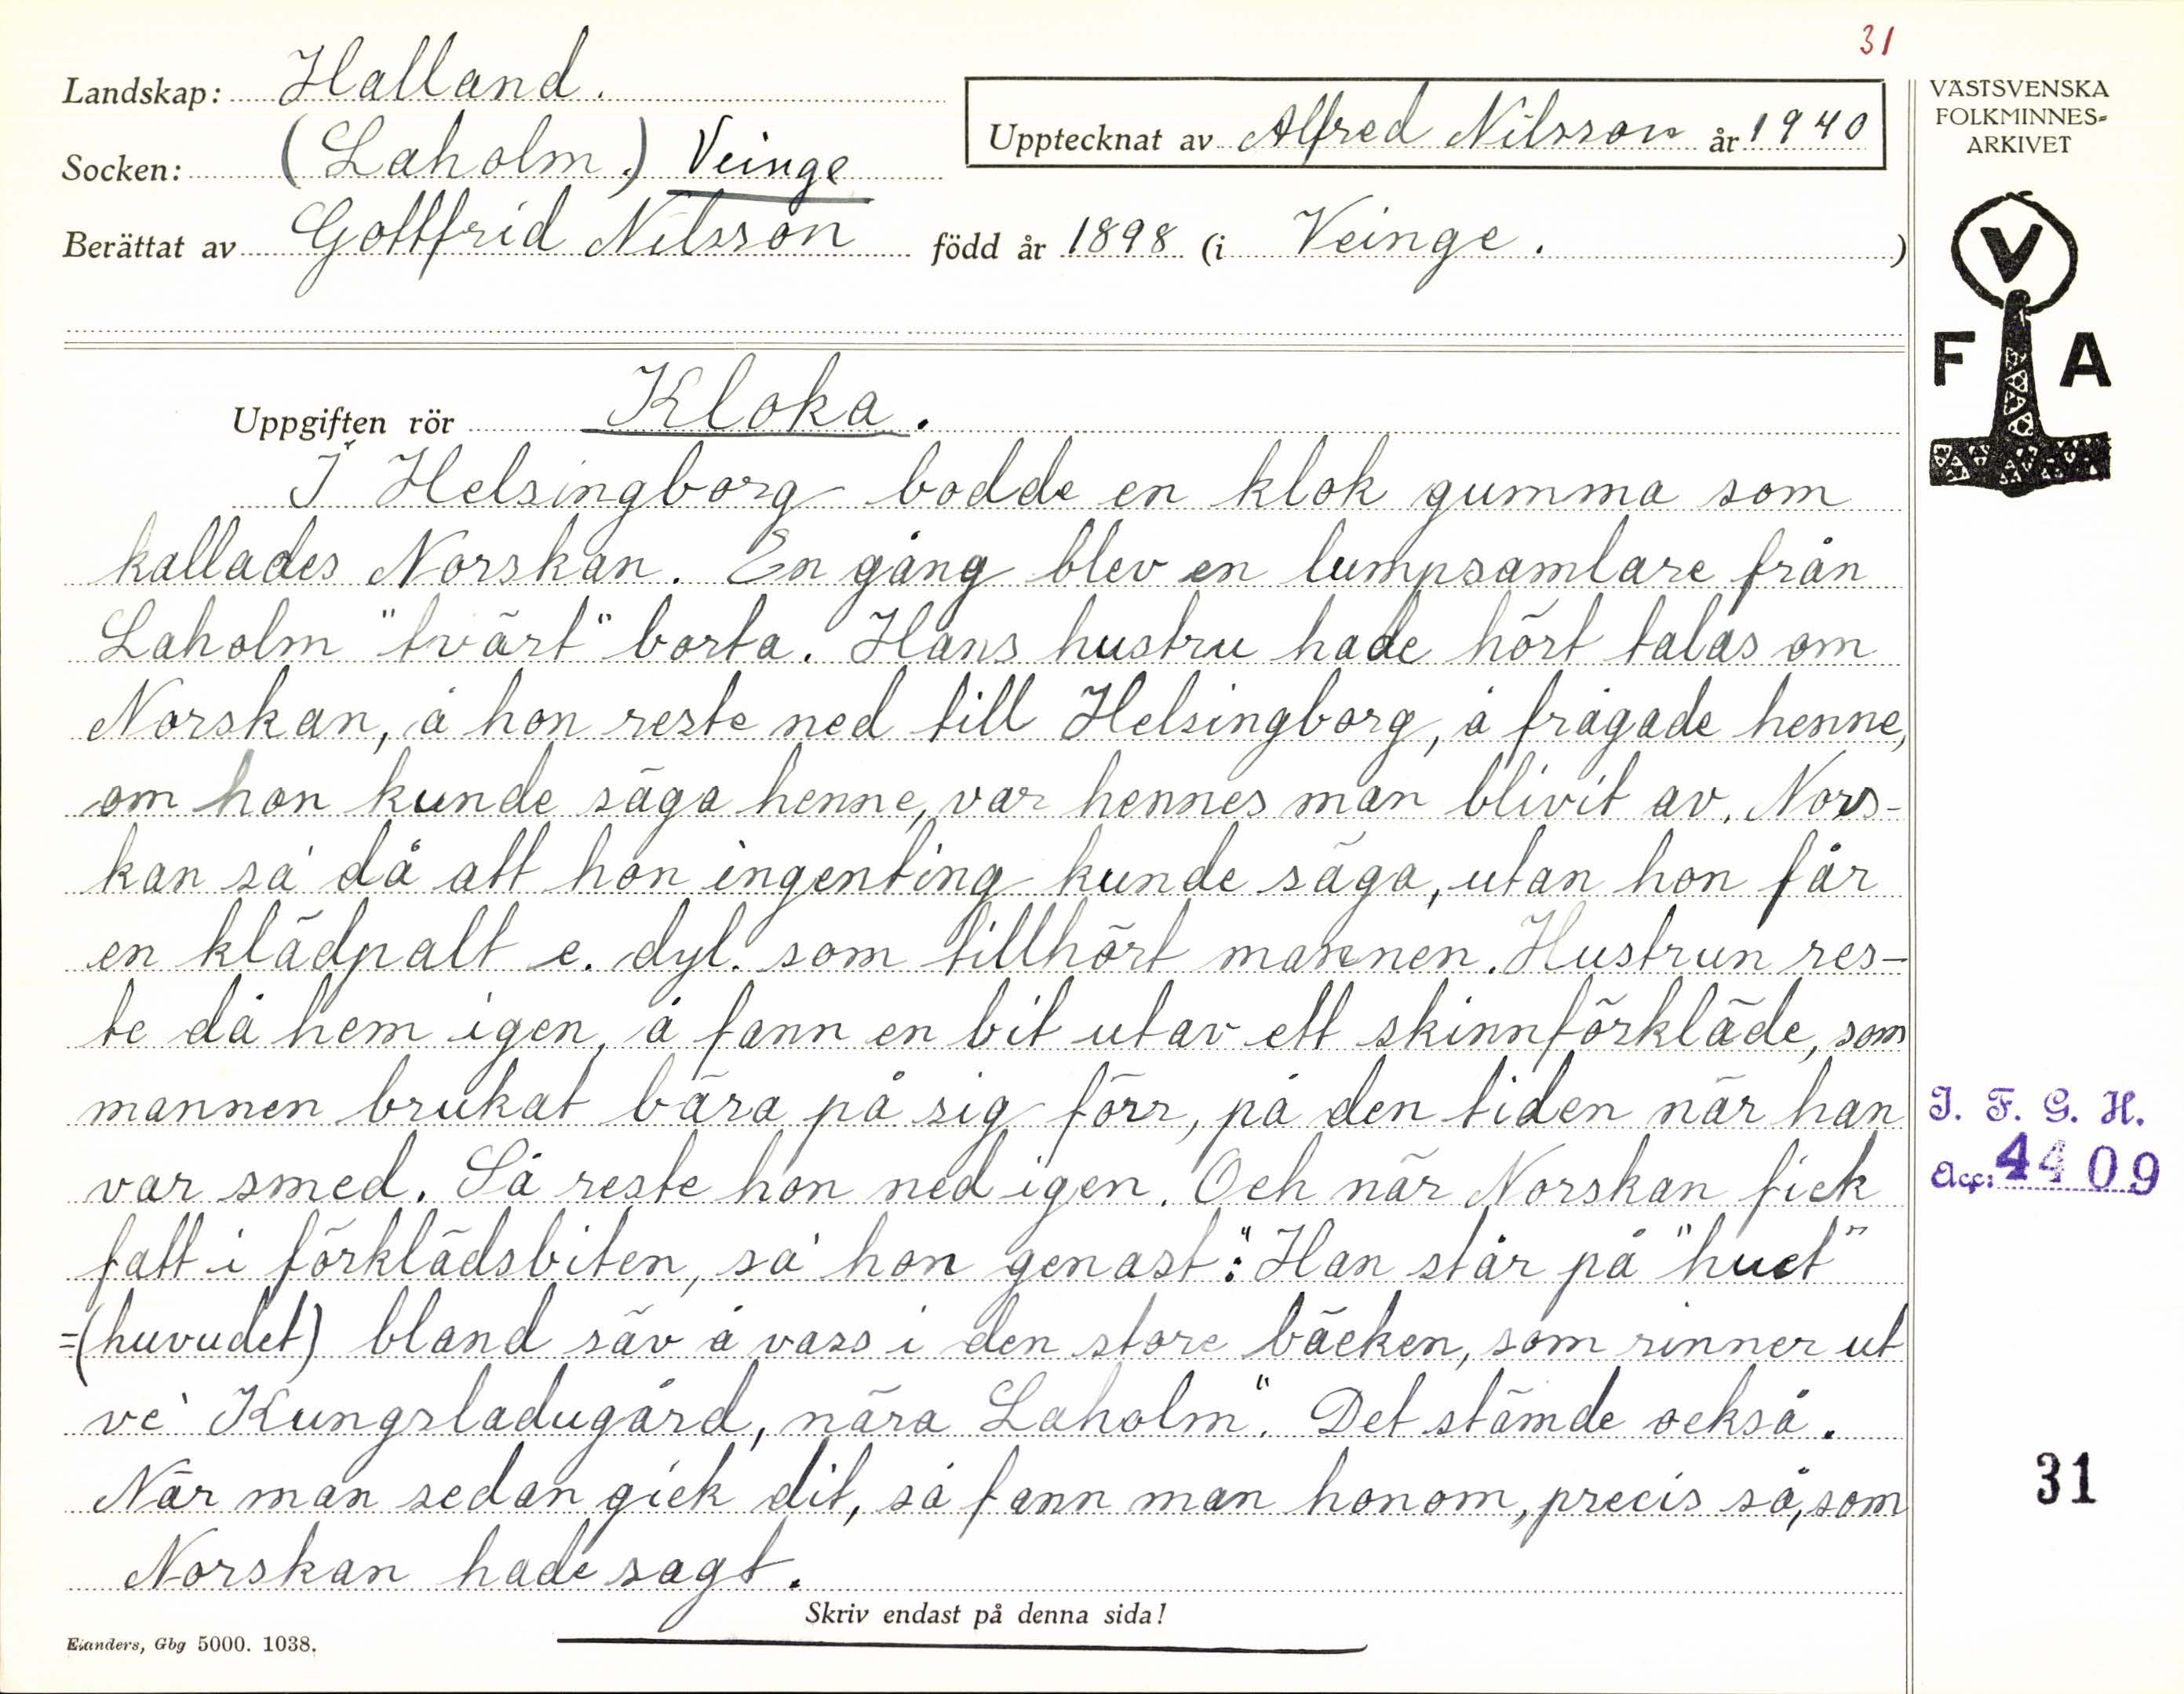 31
Landskap: Halland.
Upptecknat av Alfred Nilsson år 1940
Socken: (Laholm.) Veinge
Berättat av Gottfrid Nilsson född år 1898 (i Veinge.)
Uppgiften rör Kloka.
I Helsingborg bodde en klok gumma som
kallades Norskan. En gång blev en lumpsamlare från
Laholm "tvärt" borta. Hans hustru hade hört talas om
Norskan, å hon reste ned till Helsingborg, å frågade henne,
om hon kunde säga henne, var hennes man blivit av. Nors-
kan sa' då att hon ingenting kunde säga, utan hon får
en klädpalt e. dyl. som tillhört mannen. Hustrun res-
te då hem igen, å fann en bit utav ett skinnförkläde, som
mannen brukat bära på sig förr, på den tiden när han
var smed. Så reste hon ned igen. Och när Norskan fick
fatt i förklädsbiten, sa' hon genast: "Han står på "huet"
=(huvudet) bland säv å vass i den store bäcken, som rinner ut
ve' Kungsladugård, nära Laholm". Det stämde också.
När man sedan gick dit, så fann man honom, precis så, som
Norskan hade sagt.
Skriv endast på denna sida!
Elanders, Gbg 5000. 1038.
VÄSTSVENSKA
FOLKMINNES-
ARKIVET
V
F A
I. F. G. H.
Acc: 4409
31